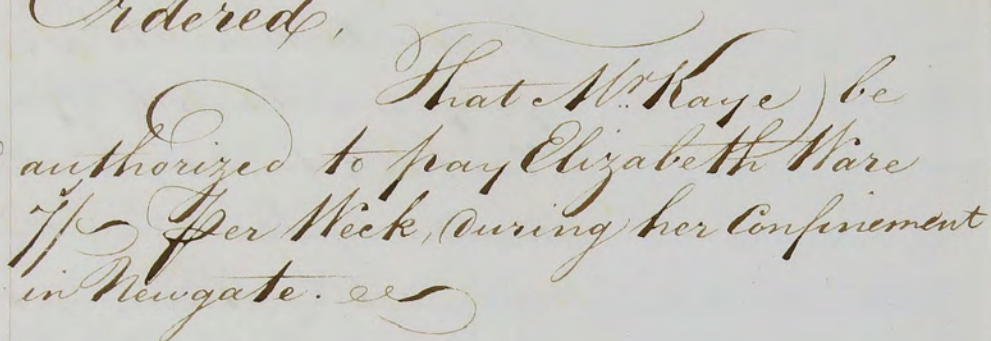 Ordered,
That Mr. Kaye be
authorized to pay Elizabeth Ware
7/- per Week, during her Confinement
in Newgate.